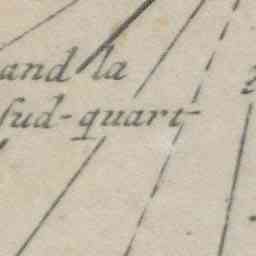 and la
ſud-quart